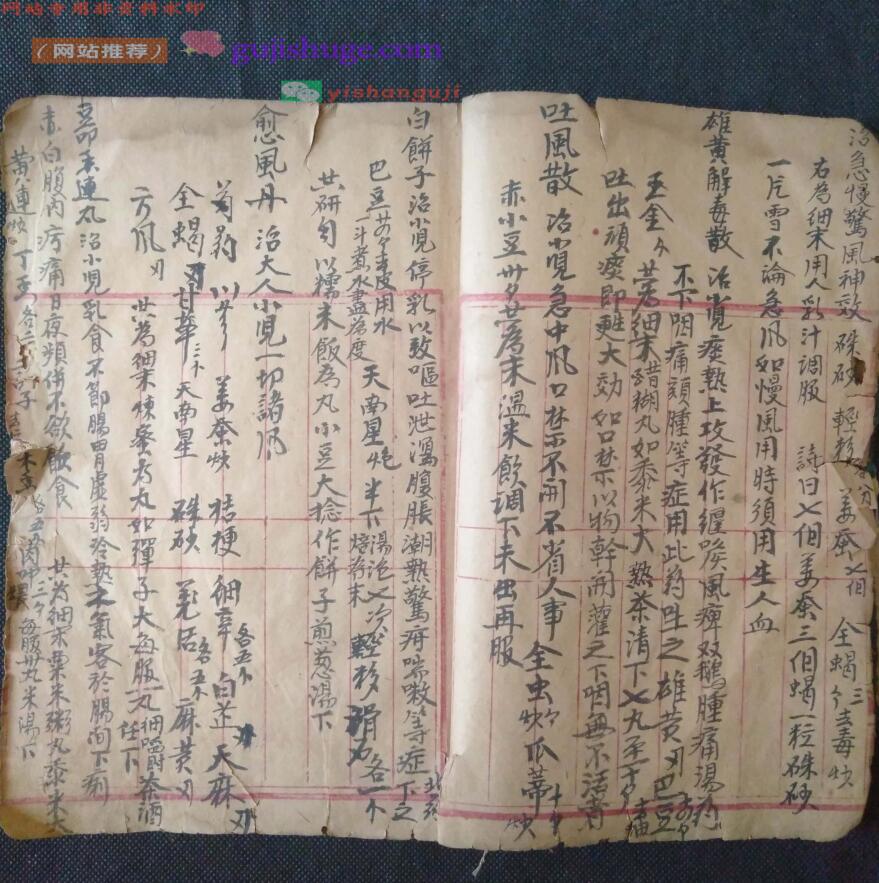 网站专用非资料水印
（网站推荐）
gujishuge.com
yishanguji
治急慢驚風神效 硃砂 輕粉 姜蚕七個 全蝎三个去毒炒
右為細末用人乳汁調服 詩曰七個姜蚕三個蝎一粒硃砂
一片雪不論急風如慢風用時須用生人血
雄黄解毒散 治小児痰熱上攻發作纏喉風痺双鵝腫痛湯药
不下咽痛頭腫等症用此药吐之 雄黄 巴豆
玉金 共為細末醋糊丸如黍米大熱茶清下七九至十
吐出頑痰即甦大効 如口禁以物幹開灌之下咽無不活者
吐風散 治小児急中風口禁不開不省人事 全虫炒 瓜蒂炒
赤小豆卅 共為末溫米飲調下未出再服
白餅子治小児停乳以致嘔吐泄瀉腹脹潮熱驚疳喘嗽等症下之
巴豆 去皮用水一斗煮水盡為度 天南星炮 半下湯泡七次焙為末 輕粉 滑石 各一个
共研勻以糯米飯為丸小豆大捻作餅子煎葱湯下
愈風丹 治大人小児一切諸風
芍药 川芎 姜蚕炒 桔梗 細辛 白芷 天麻
全蝎 甘草 天南星 硃砂 羌活 各五个 麻黄
方風 共為細末煉蜜為丸如彈子大每服一丸細嚼茶酒任下
香連丸 治小児乳食不節腸胃虚弱冷熱之氣客於腸间下痢
赤白腹内疞痛日夜頻併不欲飲食 共為細末粟米粥丸黍米大
黄連炒 丁香 各三 訶子 木香 各五 肉叩 三个 每服卅丸米湯下